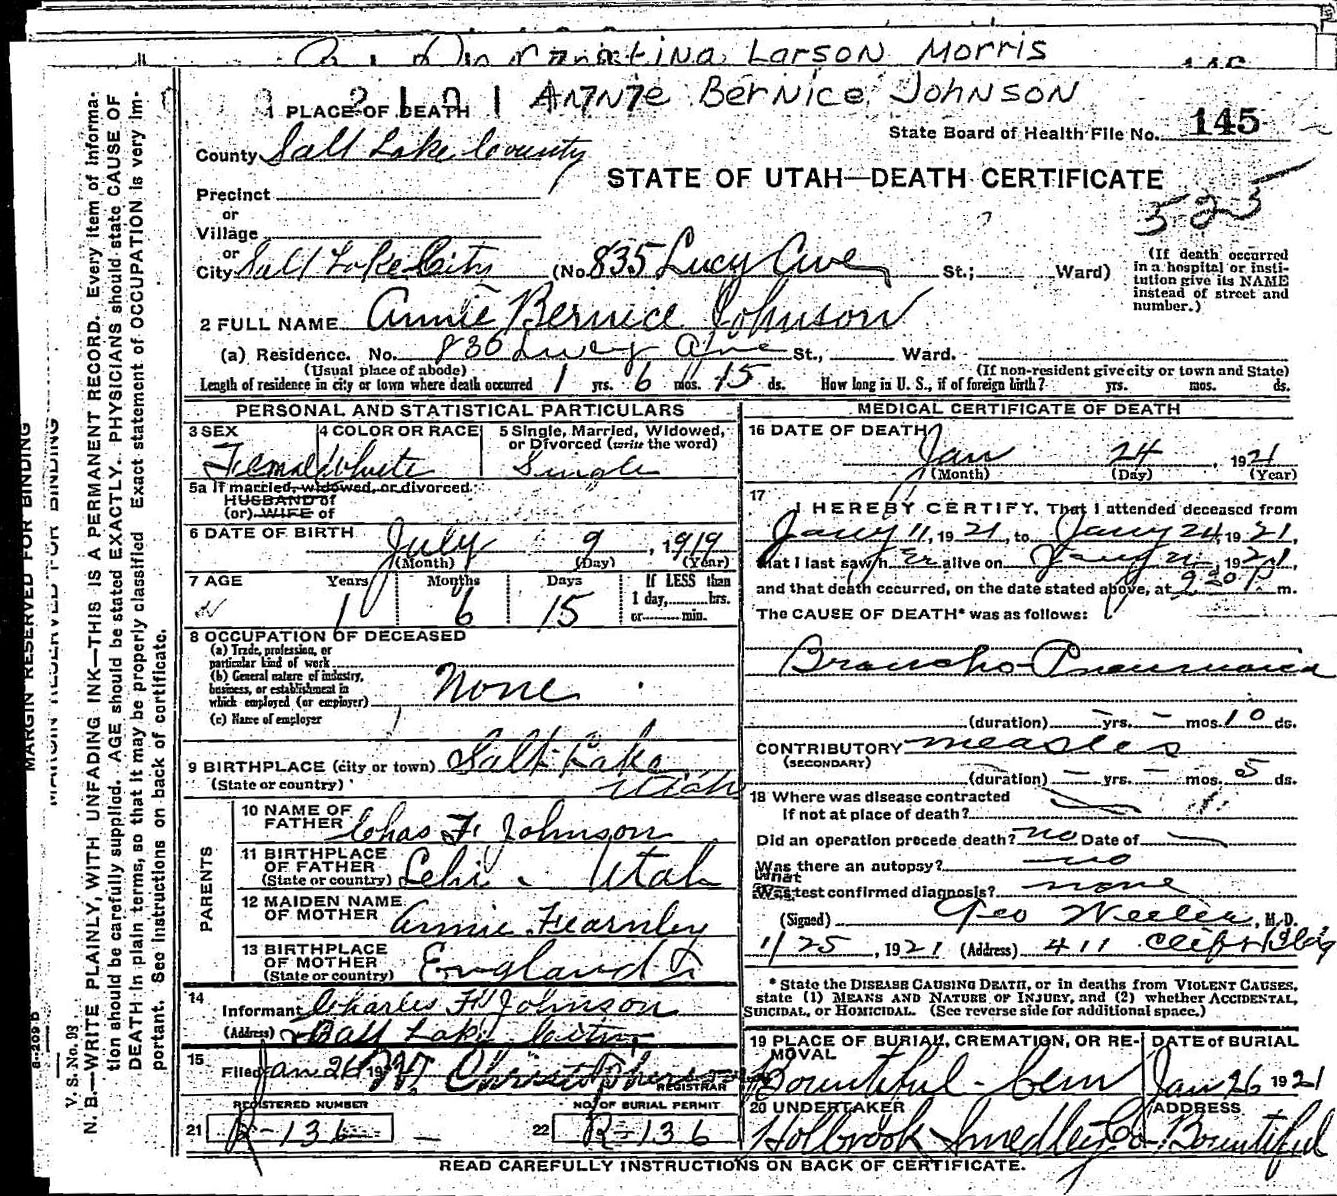 Larson Morris
Annie Bernice Johnson
1 PLACE OF DEATH
State Board of Health File No. 145
County Salt Lake County
STATE OF UTAH—DEATH CERTIFICATE
525
Precinct
or
Village
or
City Salt Lake City (No. 835 Lucy Ave St.; Ward)
(If death occurred in a hospital or institution give its NAME instead of street and number.)
2 FULL NAME Annie Bernice Johnson
(a) Residence. No. 836 Lucy Ave St., Ward.
(Usual place of abode) (If non-resident give city or town and State)
Length of residence in city or town where death occurred 1 yrs. 6 mos. 15 ds. How long in U. S., if of foreign birth? yrs. mos. ds.
PERSONAL AND STATISTICAL PARTICULARS
3 SEX Female
4 COLOR OR RACE White
5 Single, Married, Widowed, or Divorced (write the word) Single
5a If married, widowed, or divorced
HUSBAND of
(or) WIFE of
6 DATE OF BIRTH July 9, 1919
(Month) (Day) (Year)
7 AGE Years Months Days If LESS than
1 6 15 1 day, hrs.
or min.
8 OCCUPATION OF DECEASED
(a) Trade, profession, or
particular kind of work
(b) General nature of industry,
business, or establishment in
which employed (or employer) None
(c) Name of employer
9 BIRTHPLACE (city or town) Salt Lake
(State or country) Utah
PARENTS
10 NAME OF
FATHER Chas F. Johnson
11 BIRTHPLACE
OF FATHER
(State or country) Lehi Utah
12 MAIDEN NAME
OF MOTHER Annie Fearnley
13 BIRTHPLACE
OF MOTHER
(State or country) England
14
Informant Charles F. Johnson
(Address) Salt Lake City
15
Filed Jan 26 19
REGISTRAR
REGISTERED NUMBER
21 R-136
NO. OF BURIAL PERMIT
22 R-136
MEDICAL CERTIFICATE OF DEATH
16 DATE OF DEATH
Jan 24, 1921
(Month) (Day) (Year)
17
I HEREBY CERTIFY, That I attended deceased from
Jany 11, 1921, to Jany 24, 1921,
that I last saw her alive on Jany 1921,
and that death occurred, on the date stated above, at 9 20 P. m.
The CAUSE OF DEATH* was as follows:
Broncho-Pneumonia
(duration) — yrs. — mos. 10 ds.
CONTRIBUTORY measles
(SECONDARY)
(duration) — yrs. — mos. 5 ds.
18 Where was disease contracted
If not at place of death?
Did an operation precede death? no Date of
Was there an autopsy? no
What test confirmed diagnosis? none
(Signed) Geo, M.D.
1/25, 1921 (Address) 411 Clift Bldg
* State the DISEASE CAUSING DEATH, or in deaths from VIOLENT CAUSES,
state (1) MEANS AND NATURE OF INJURY, and (2) whether ACCIDENTAL,
SUICIDAL, or HOMICIDAL. (See reverse side for additional space.)
19 PLACE OF BURIAL, CREMATION, OR RE-
MOVAL
Bountiful Cem
DATE of BURIAL
Jan 26 1921
20 UNDERTAKER
Holbrook Smedley Co
ADDRESS
Bountiful
READ CAREFULLY INSTRUCTIONS ON BACK OF CERTIFICATE.
MARGIN RESERVED FOR BINDING
MARGIN RESERVED FOR BINDING
8-209 D
V. S. No. 98
N. B.—WRITE PLAINLY, WITH UNFADING INK—THIS IS A PERMANENT RECORD. Every item of informa-
tion should be carefully supplied. AGE should be stated EXACTLY. PHYSICIANS should state CAUSE OF
DEATH in plain terms, so that it may be properly classified Exact statement of OCCUPATION is very im-
portant. See instructions on back of certificate.